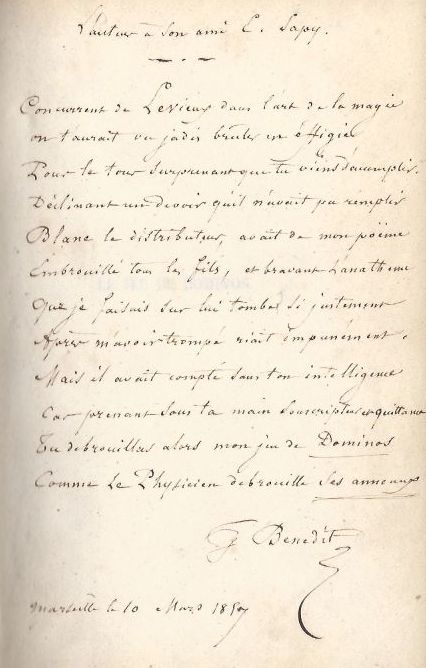 L'auteur à son ami C. Sapy.
Concurrent de Levieux dans l'art de la magie
on t'aurait vu jadis brûler en éffigie
Pour le tour surprenant que tu viens d'accomplir.
Déclinant un devoir qu'il n'avait pu remplir
Blanc le distributeur, avait de mon poëme
Embrouillé tous les fils, et bravant l'anathème
Que je faisais sur lui tomber si justement
Après m'avoir trompé riait impunément.
Mais il avait compté sans ton intelligence
Car prenant sous ta main souscripteur et quittance
Tu débrouillas alors mon jeu de Dominos
Comme le Physicien débrouille ses anneaux
G. Benedit
Marseille le 10 Mars 1857